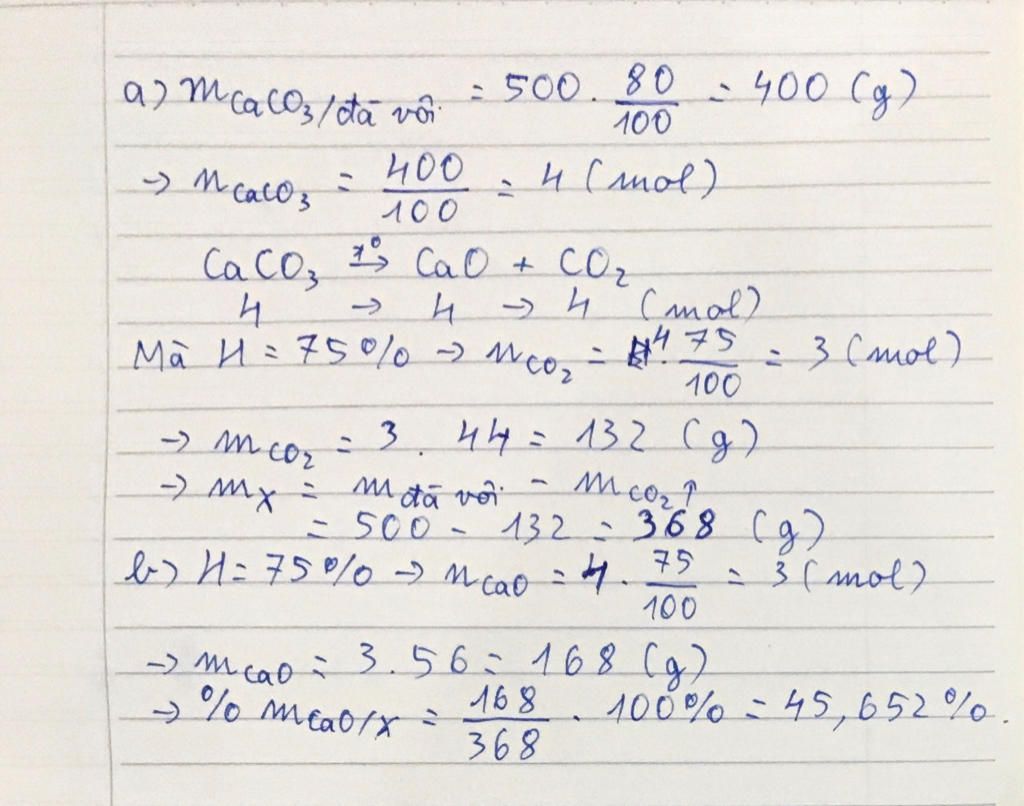 a) mCaCO3/đá vôi = 500 . 80/100 = 400 (g)
→ nCaCO3 = 400/100 = 4 (mol)
CaCO3 t°→ CaO + CO2
4 → 4 → 4 (mol)
Mà H = 75% → nCO2 = 4 . 75/100 = 3 (mol)
→ mCO2 = 3 . 44 = 132 (g)
→ mX = mđá vôi - mCO2↑
= 500 - 132 = 368 (g)
b) H = 75% → nCaO = 4 . 75/100 = 3 (mol)
→ mCaO = 3 . 56 = 168 (g)
→ % mCaO/X = 168/368 . 100% = 45,652%.